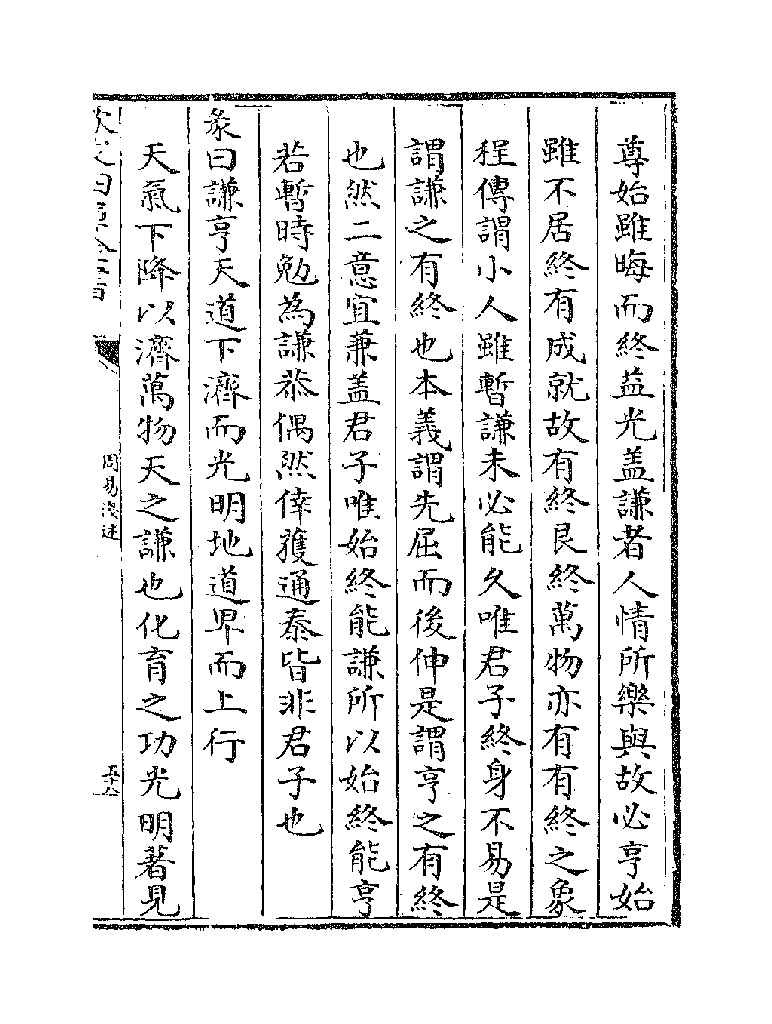 尊始雖晦而終益光盖謙者人情所樂與故必亨始
雖不居終有成就故有終艮終萬物亦有有終之象
程傳謂小人雖暫謙未必能久唯君子終身不易是
謂謙之有終也本義謂先屈而後伸是謂亨之有終
也然二意宜兼盖君子唯始終能謙所以始終能亨
若暫時勉為謙恭偶然倖獲通泰皆非君子也
彖曰謙亨天道下濟而光明地道卑而上行
天氣下降以濟萬物天之謙也化育之功光明著見
周易淺述